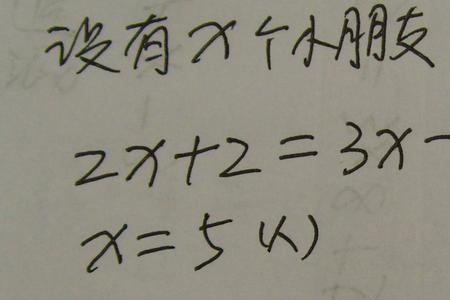 设有x个小朋友
2x+2=3x-
x=5(人)